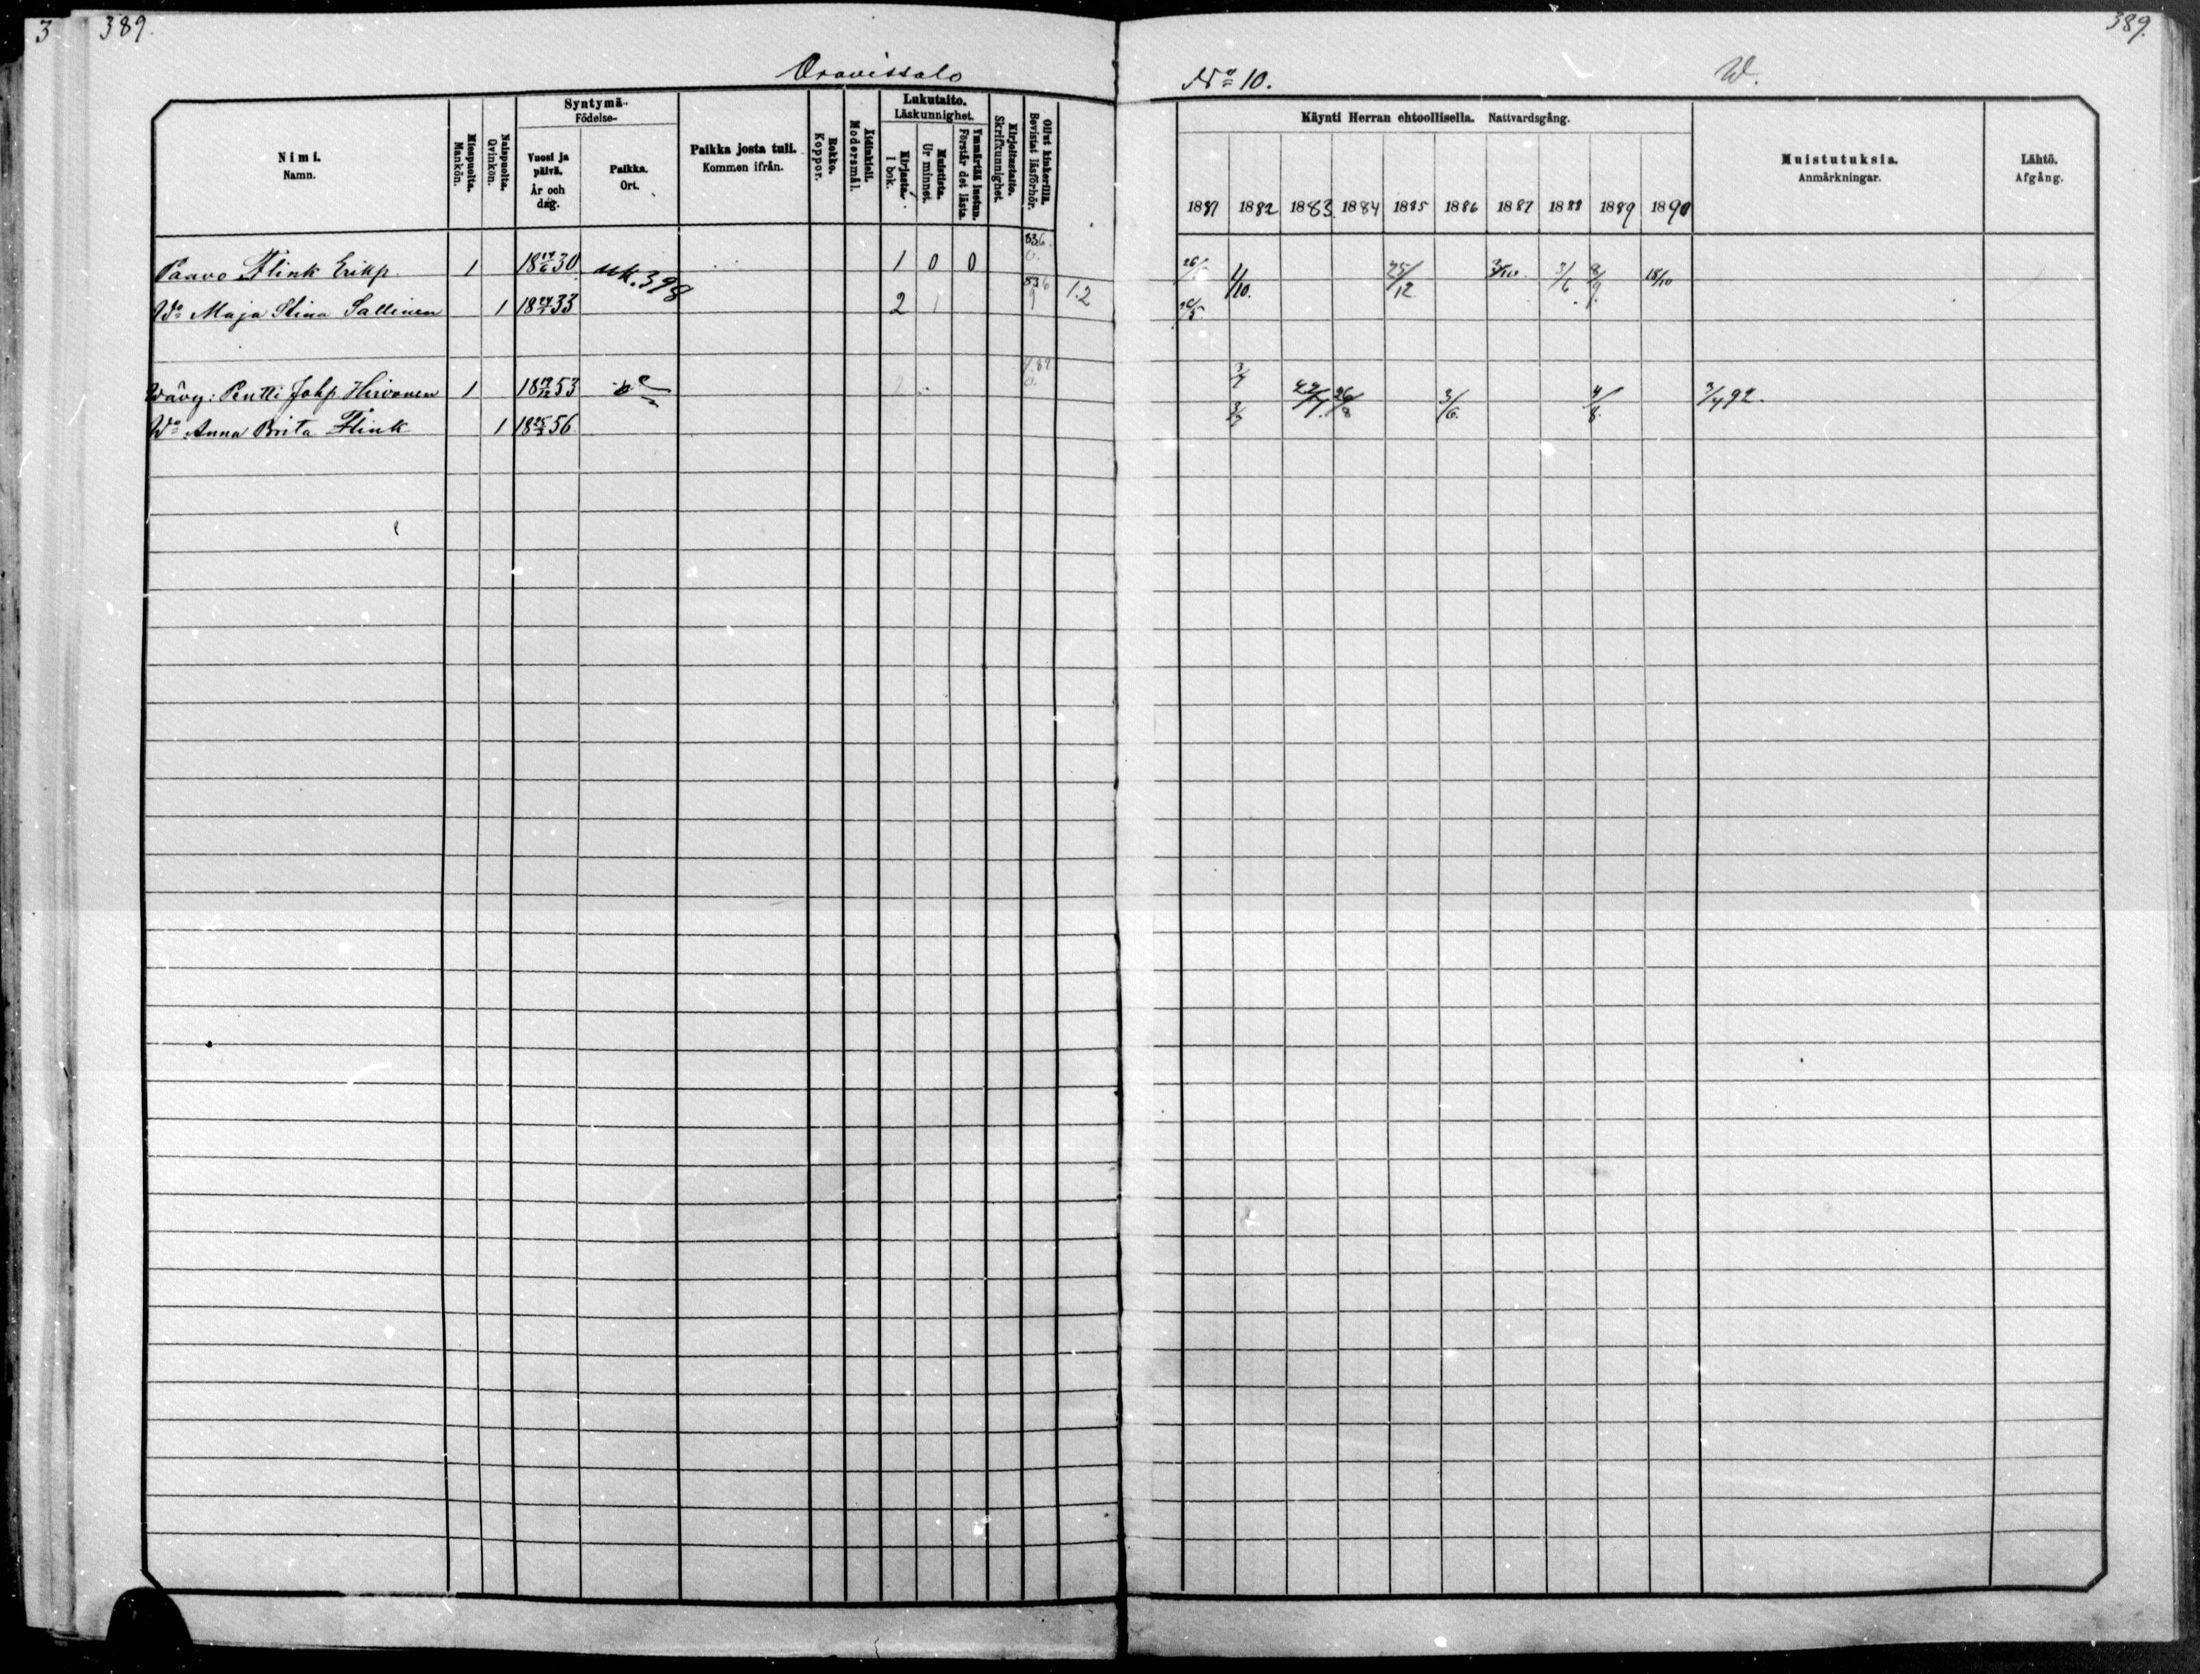 3 389. 389.
Oravissalo No 10. W.
Nimi.
Namn.
Miespuolta.
Mankön.
Naispuolta.
Qvinkön.
Syntymä-
Födelse-
Vuosi ja päivä.
År och dag.
Paikka.
Ort.
Paikka josta tuli.
Kommen ifrån.
Rokko.
Koppor.
Äidinkieli.
Modersmål.
Lukutaito.
Läskunnighet.
Kirjasta.
I bok.
Muistista.
Ur minnet.
Ymmärtää luetun.
Förstår det lästa.
Kirjoitustaito.
Skrifkunnighet.
Ollut kinkerillä.
Bevistat läsförhör.
Käynti Herran ehtoollisella. Nattvardsgång.
1881 1882 1883 1884 1885 1886 1887 1888 1889 1890
Muistutuksia.
Anmärkningar.
Lähtö.
Afgång.
Paavo Flink Erikp. 1 18 30 uk. 398 1 0 0 836 26/5 1/10. 25/12 3/10. 3/6 8/9. 18/10
Wo Maja Stina Sallinen 1 18 33 2 1 836 9 1.2 26/5
Wävy: Pentti Johp Hirvonen 1 18 53 3/7 26/8 3/6. 4/8 3/4 92.
Wo Anna Brita Flink 1 18 56. 3/7